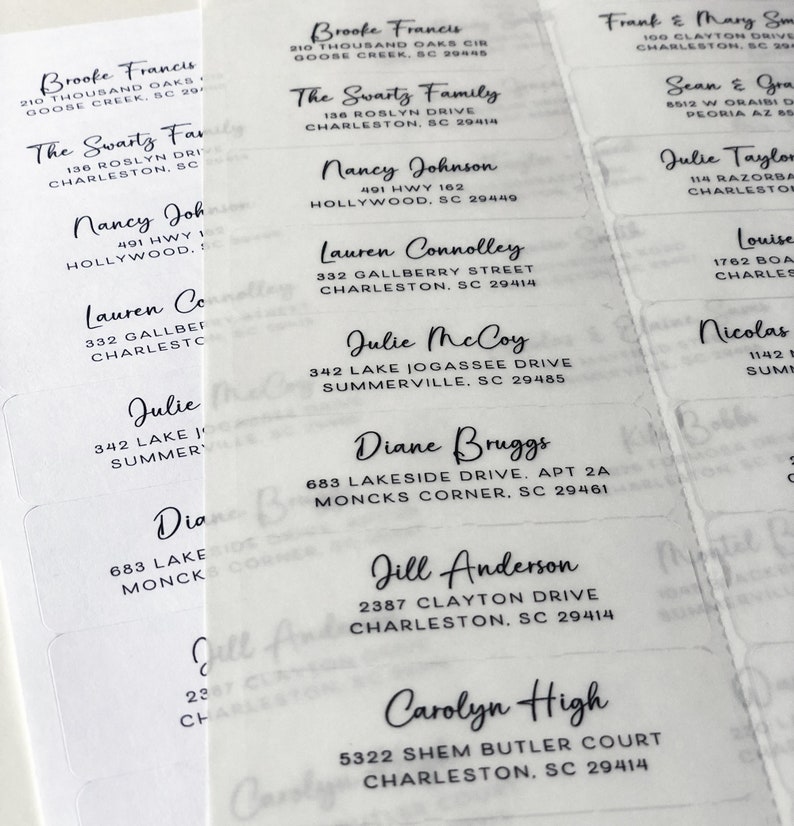 Brooke Francis
210 THOUSAND OAKS CIR
GOOSE CREEK, SC 29445
The Swartz Family
136 ROSLYN DRIVE
CHARLESTON, SC 29414
Nancy Johnson
491 HWY 162
HOLLYWOOD, SC 29449
Lauren Connolley
332 GALLBERRY STREET
CHARLESTON, SC 29414
Julie McCoy
342 LAKE JOGASSEE DRIVE
SUMMERVILLE, SC 29485
Diane Bruggs
683 LAKESIDE DRIVE, APT 2A
MONCKS CORNER, SC 29461
Jill Anderson
2387 CLAYTON DRIVE
CHARLESTON, SC 29414
Carolyn High
5322 SHEM BUTLER COURT
CHARLESTON, SC 29414
Frank & Mary Sm
100 CLAYTON DRIVE
CHARLESTON, SC 294
Sean & Gra
8512 W ORAIBI D
PEORIA AZ 85
Julie Taylor
114 RAZORBA
CHARLESTO
Louise
1762 BOA
CHARLES
Nicolas
1142
SUMM
Brooke Francis
210 THOUSAND OAKS
GOOSE CREEK, SC 294
The Swartz Fam
136 ROSLYN DRIV
CHARLESTON, SC
Nancy Joh
491 HWY
HOLLYWOOD,
Lauren Co
332 GALLBER
CHARLESTON
Julie
342 LAKE J
SUMMERV
Dia
683 LAKE
MONCKS
J
23
CH